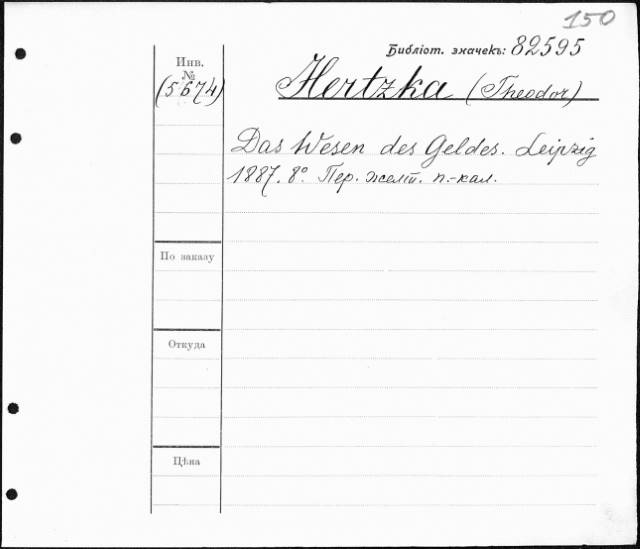 150
Библіот. значекъ: 82595
Инв.
№
(5674)
Hertzka (Theodor)
Das Wesen des Geldes. Leipzig
1887. 8°. Пер. желт. п.-кал.
По заказу
Откуда
Цѣна